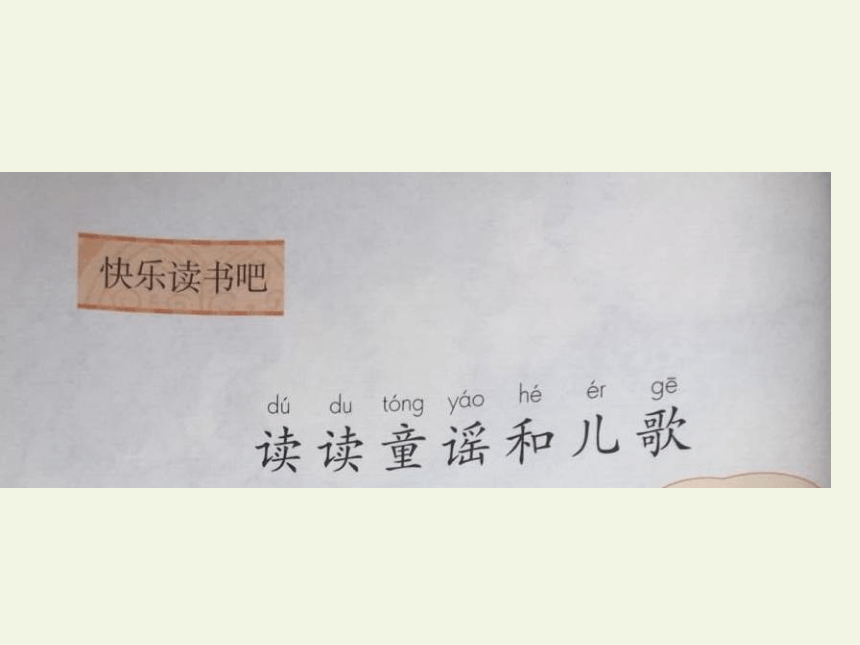 快乐读书吧
dú du tóng yáo hé ér gē
读读童谣和儿歌